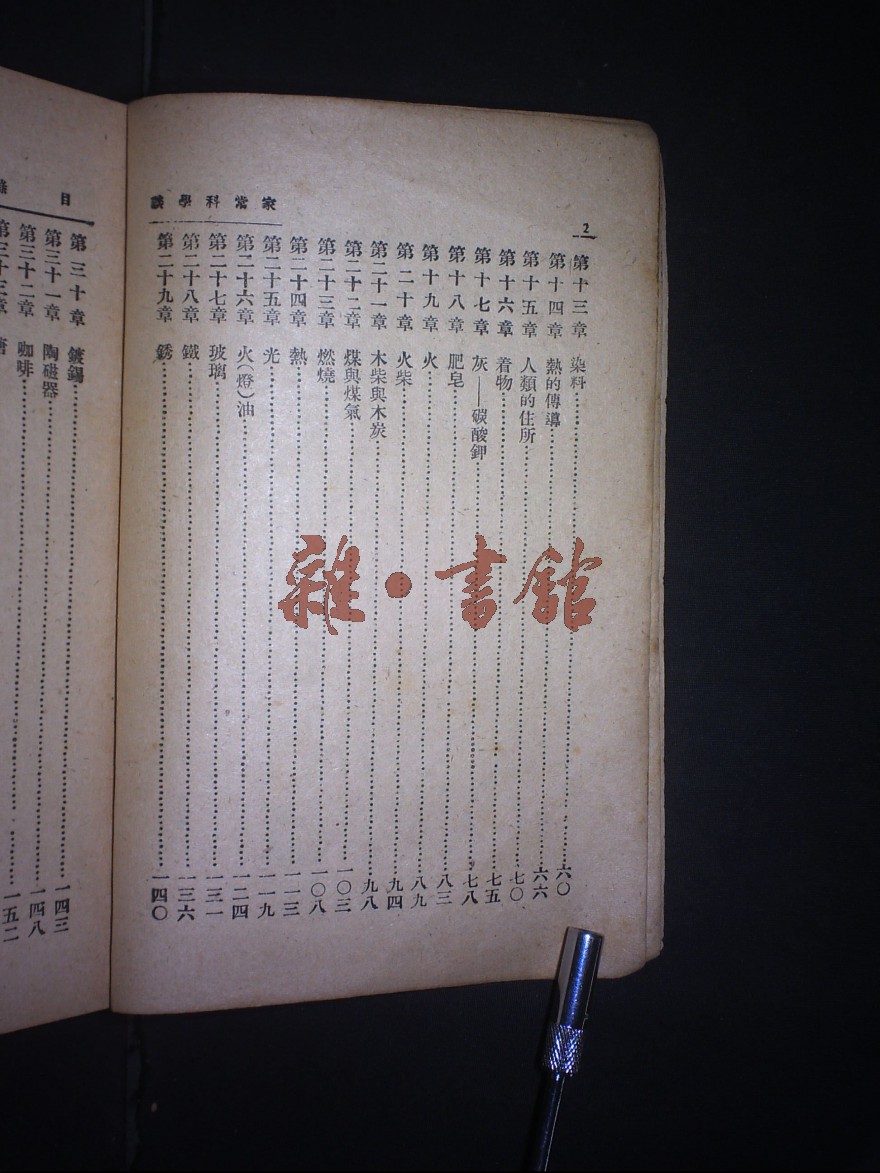 2
家常科學談
第十三章 染料……六〇
第十四章 熱的傳導……六六
第十五章 人類的住所……七〇
第十六章 着物……七五
第十七章 灰——碳酸鉀……七八
第十八章 肥皂……八三
第十九章 火……八九
第二十章 火柴……九四
第二十一章 木柴與木炭……九八
第二十二章 煤與煤氣……一〇三
第二十三章 燃燒……一〇八
第二十四章 熱……一一三
第二十五章 光……一一九
第二十六章 火(燈)油……一二四
第二十七章 玻璃……一三一
第二十八章 鐵……一三六
第二十九章 銹……一四〇
目
第三十章 鍍錫……一四三
第三十一章 陶磁器……一四八
第三十二章 咖啡……一五二
第三十三章 糖
雜·書館